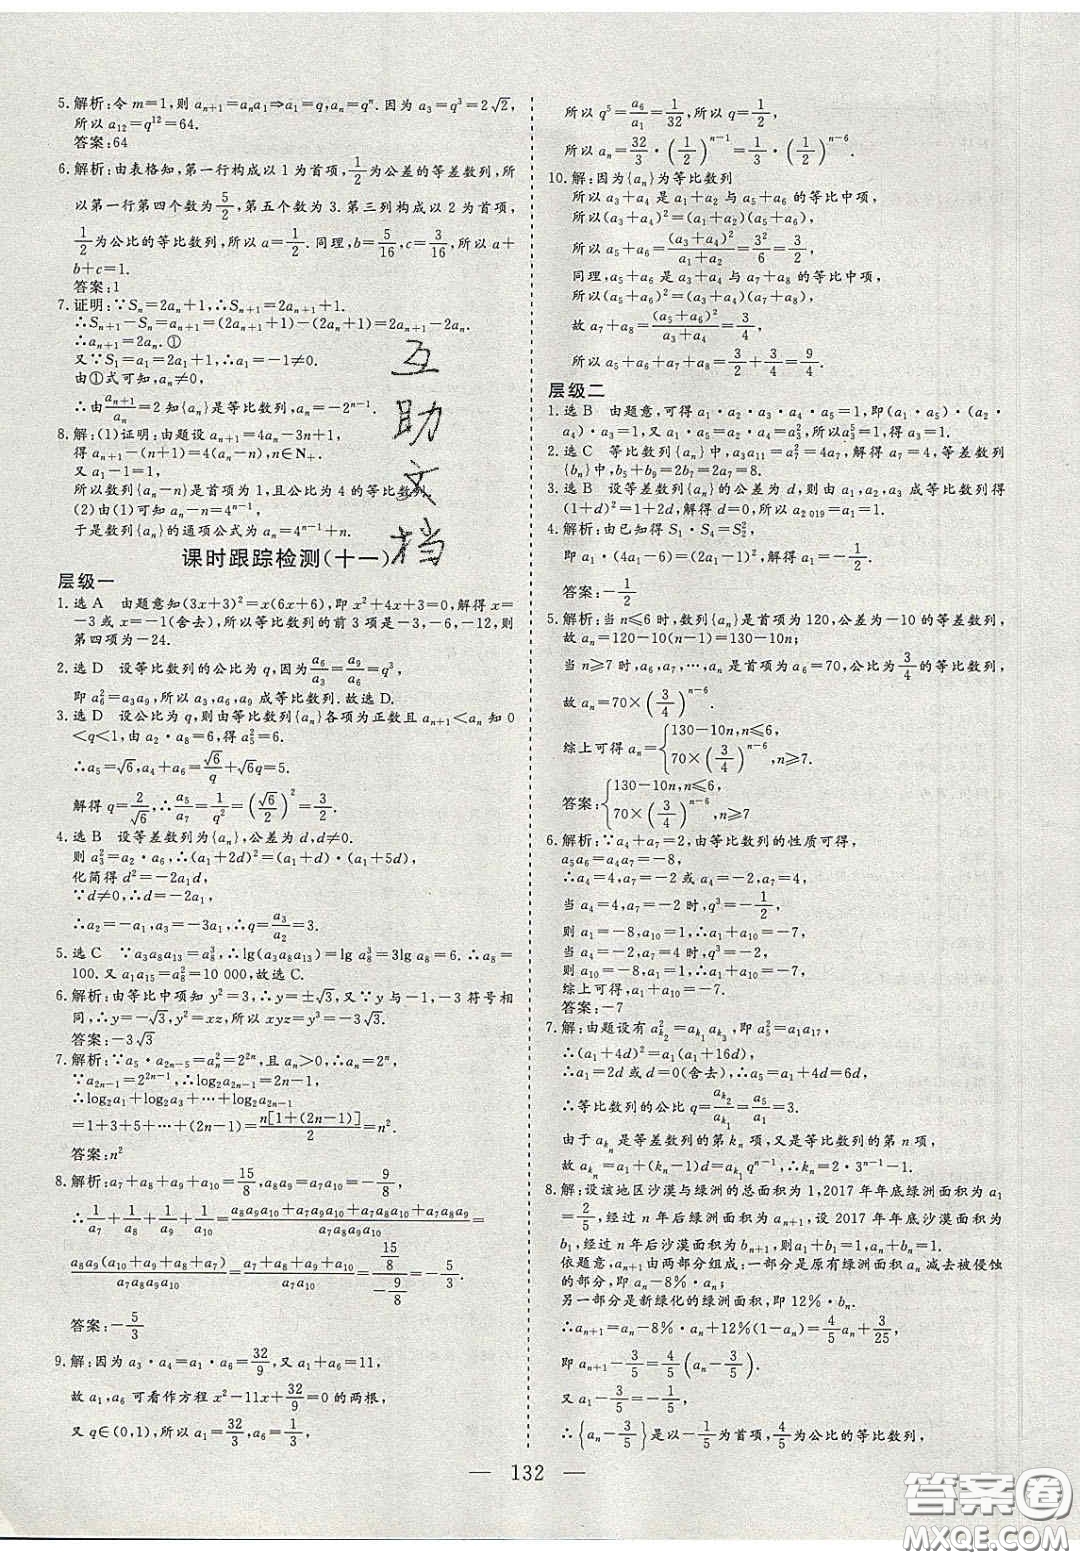 5.解析:令m=1,则aₙ₊₁=aₙa₁⇒a₁=q,aₙ=qⁿ.因为a₃=q³=2√2,
所以a₁₂=q¹²=64.
答案:64
6.解析:由表格知,第一行构成以1为首项,1/2为公差的等差数列,所
以第一行第四个数为5/2,第五个数为3.第三列构成以2为首项,
1/2为公比的等比数列,所以a=1/2.同理,b=5/16,c=3/16,所以a+
b+c=1.
答案:1
7.证明:∵Sₙ=2aₙ+1,∴Sₙ₊₁=2aₙ₊₁+1.
∴Sₙ₊₁-Sₙ=aₙ₊₁=(2aₙ₊₁+1)-(2aₙ+1)=2aₙ₊₁-2aₙ.
∴aₙ₊₁=2aₙ.①
又∵S₁=a₁=2a₁+1,∴a₁=-1≠0.
由①式可知,aₙ≠0,
∴由aₙ₊₁/aₙ=2知{aₙ}是等比数列,aₙ=-2ⁿ⁻¹.
8.解:(1)证明:由题设aₙ₊₁=4aₙ-3n+1,
得aₙ₊₁-(n+1)=4(aₙ-n),n∈N₊.
又a₁-1=1,
所以数列{aₙ-n}是首项为1,且公比为4的等比数列.
(2)由(1)可知aₙ-n=4ⁿ⁻¹,
于是数列{aₙ}的通项公式为aₙ=4ⁿ⁻¹+n.
课时跟踪检测(十一)
层级一
1.选A 由题意知(3x+3)²=x(6x+6),即x²+4x+3=0,解得x=
-3或x=-1(舍去),所以等比数列的前3项是-3,-6,-12,则
第四项为-24.
2.选D 设等比数列的公比为q,因为a₆/a₃=a₉/a₆=q³,
即a₆²=a₃a₉,所以a₃,a₆,a₉成等比数列.故选D.
3.选D 设公比为q,则由等比数列{aₙ}各项为正数且aₙ₊₁<aₙ知0
<q<1,由a₂·a₈=6,得a₅²=6.
∴a₅=√6,a₄+a₆=√6/q+√6q=5.
解得q=2/√6,∴a₅/a₇=1/q²=(√6/2)²=3/2.
4.选B 设等差数列为{aₙ},公差为d,d≠0.
则a₃²=a₂·a₆,∴(a₁+2d)²=(a₁+d)(a₁+5d),
化简得d²=-2a₁d,
∵d≠0,∴d=-2a₁,
∴a₂=-a₁,a₃=-3a₁,∴q=a₃/a₂=3.
5.选C ∵a₃a₈a₁₃=a₈³,∴lg(a₃a₈a₁₃)=lg a₈³=3lg a₈=6.∴a₈=
100.又a₁a₁₅=a₈²=10 000,故选C.
6.解析:由等比中项知y²=3,∴y=±√3,又∵y与-1,-3符号相
同,∴y=-√3,y²=xz,所以xyz=y³=-3√3.
答案:-3√3
7.解析:∵a₅·a₂ₙ₋₅=aₙ²=2²ⁿ,且aₙ>0,∴aₙ=2ⁿ,
∵a₂ₙ₋₁=2²ⁿ⁻¹,∴log₂a₂ₙ₋₁=2n-1,
∴log₂a₁+log₂a₃+…+log₂a₂ₙ₋₁
=1+3+5+…+(2n-1)=n[1+(2n-1)]/2=n².
答案:n²
8.解析:a₇+a₈+a₉+a₁₀=15/8,a₈a₉=a₇a₁₀=-9/8,
∴1/a₇+1/a₈+1/a₉+1/a₁₀=(a₈a₉a₁₀+a₇a₉a₁₀+a₇a₈a₁₀+a₇a₈a₉)/(a₇a₈a₉a₁₀)=
a₈a₉(a₁₀+a₉+a₈+a₇)/(a₇a₈a₉a₁₀)=(a₇+a₈+a₉+a₁₀)/(a₇a₁₀)=(15/8)/(-9/8)=-5/3.
答案:-5/3
9.解:因为a₃·a₄=a₁·a₆=32/9,又a₁+a₆=11,
故a₁,a₆可看作方程x²-11x+32/9=0的两根,
又q∈(0,1),所以a₁=32/3,a₆=1/3,
所以q⁵=a₆/a₁=1/32,所以q=1/2,
所以aₙ=32/3·(1/2)ⁿ⁻¹=1/3·(1/2)ⁿ⁻⁶.
10.解:因为{aₙ}为等比数列
所以a₃+a₄是a₁+a₂与a₅+a₆的等比中项,
所以(a₃+a₄)²=(a₁+a₂)(a₅+a₆),
所以a₅+a₆=(a₃+a₄)²/(a₁+a₂)=3²/6=3/2.
同理,a₅+a₆是a₃+a₄与a₇+a₈的等比中项,
所以(a₅+a₆)²=(a₃+a₄)(a₇+a₈),
故a₇+a₈=(a₅+a₆)²/(a₃+a₄)=3/4,
所以a₅+a₆+a₇+a₈=3/2+3/4=9/4.
层级二
1.选B 由题意,可得a₁·a₂·a₃·a₄·a₅=1,即(a₁·a₅)·(a₂·
a₄)·a₃=1,又a₁·a₅=a₂·a₄=a₃²,所以a₃⁵=1,得a₃=1.
2.选C 等比数列{aₙ}中,a₃a₁₁=a₇²=4a₇,解得a₇=4,等差数列
{bₙ}中,b₅+b₉=2b₇=2a₇=8.
3.选B 设等差数列{aₙ}的公差为d,则由a₁,a₂,a₃成等比数列得
(1+d)²=1+2d,解得d=0,所以a₂₀₁₉=a₁=1.
4.解析:由已知得S₁·S₄=S₂²,
即a₁·(4a₁-6)=(2a₁-1)²,解得a₁=-1/2.
答案:-1/2
5.解析:当n≤6时,数列{aₙ}是首项为120,公差为-10的等差数列,
故aₙ=120-10(n-1)=130-10n;
当n≥7时,a₆,a₇,…,aₙ是首项为a₆=70,公比为3/4的等比数列,
故aₙ=70×(3/4)ⁿ⁻⁶.
综上可得aₙ={130-10n,n≤6,
70×(3/4)ⁿ⁻⁶,n≥7.
答案:{130-10n,n≤6,
70×(3/4)ⁿ⁻⁶,n≥7
6.解析:∵a₄+a₇=2,由等比数列的性质可得,
a₅a₆=a₄a₇=-8,
∴a₄=4,a₇=-2或a₄=-2,a₇=4,
当a₄=4,a₇=-2时,q³=-1/2,
则a₁=-8,a₁₀=1,∴a₁+a₁₀=-7,
当a₄=-2,a₇=4时,q³=-2,
则a₁₀=-8,a₁=1,∴a₁+a₁₀=-7,
综上可得,a₁+a₁₀=-7.
答案:-7
7.解:由题设有a_{k₂}²=a_{k₁}a_{k₃},即a₅²=a₁a₁₇,
∴(a₁+4d)²=a₁(a₁+16d),
∴a₁=2d或d=0(舍去),∴a₅=a₁+4d=6d,
∴等比数列的公比q=a_{k₂}/a_{k₁}=a₅/a₁=3.
由于a_{kₙ}是等差数列的第kₙ项,又是等比数列的第n项,
故a_{kₙ}=a₁+(kₙ-1)d=a_{k₁}qⁿ⁻¹,∴kₙ=2·3ⁿ⁻¹-1.
8.解:设该地区沙漠与绿洲的总面积为1,2017年年底绿洲面积为a₁
=2/5,经过n年后绿洲面积为aₙ₊₁,设2017年年底沙漠面积为
b₁,经过n年后沙漠面积为bₙ₊₁,则a₁+b₁=1,aₙ+bₙ=1.
依题意,aₙ₊₁由两部分组成:一部分是原有绿洲面积aₙ减去被侵蚀
的部分,即aₙ-8%·aₙ;
另一部分是新绿化的绿洲面积,即12%·bₙ.
∴aₙ₊₁=aₙ-8%·aₙ+12%(1-aₙ)=4/5aₙ+3/25,
即aₙ₊₁-3/5=4/5(aₙ-3/5).
又a₁-3/5=-1/5,
∴{aₙ-3/5}是以-1/5为首项,4/5为公比的等比数列,
互助文档
— 132 —
答案圈
MXQE.COM